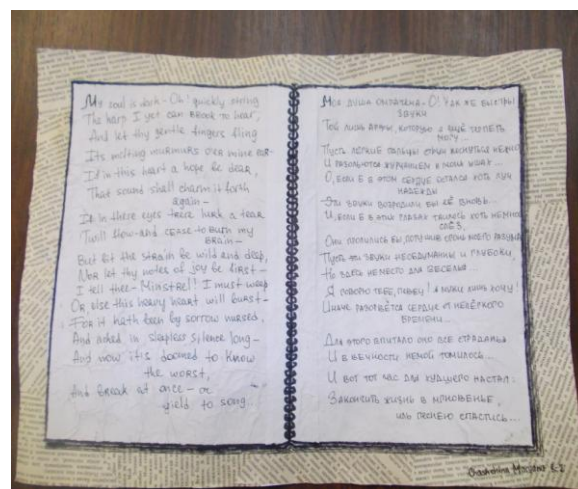 My soul is dark - Oh! quickly string
The harp I yet can BROOK to hear,
And let thy gentle fingers fling
Its melting murmurs o'er mine ear-
If in this heart a hope be dear,
That sound shall charm it forth
again -
If in these eyes there lurk a tear
'Twill flow - and cease to burn my
BRAIN -
But bid the strain be wild and deep,
Nor let thy notes of joy be first -
I tell thee - Minstrel! I must weep
Or, else this heavy heart will burst -
For it hath been by sorrow nursed,
And ached in sleepless silence long -
And now it is doomed to know
the worst,
And break at once - or
yield to song...
Моя душа омрачена. О! Как же быстры
звуки
Той лишь арфы, которую я ещё терпеть
могу...
Пусть лёгкие пальцы струн коснуться нежно
И разольются журчанием к моим ушам...
О, если б в этом сердце остался хоть луч
надежды
Эти звуки возродили бы её вновь...
И, если б в этих глазах таились хоть немного
слёз,
Они пролились бы,
Пусть эти звуки необдуманны и глубоки,
Но здесь не место для веселья...
Я говорю тебе, певец! Я мужи лишь хочу!
Иначе разорвётся сердце от нелёгкого
времени...
Для этого впитало оно все страданья
И в вечности немой томилось...
И вот тот час для худшего настал:
Закончить жизнь в мгновенье,
иль песнею спастись...